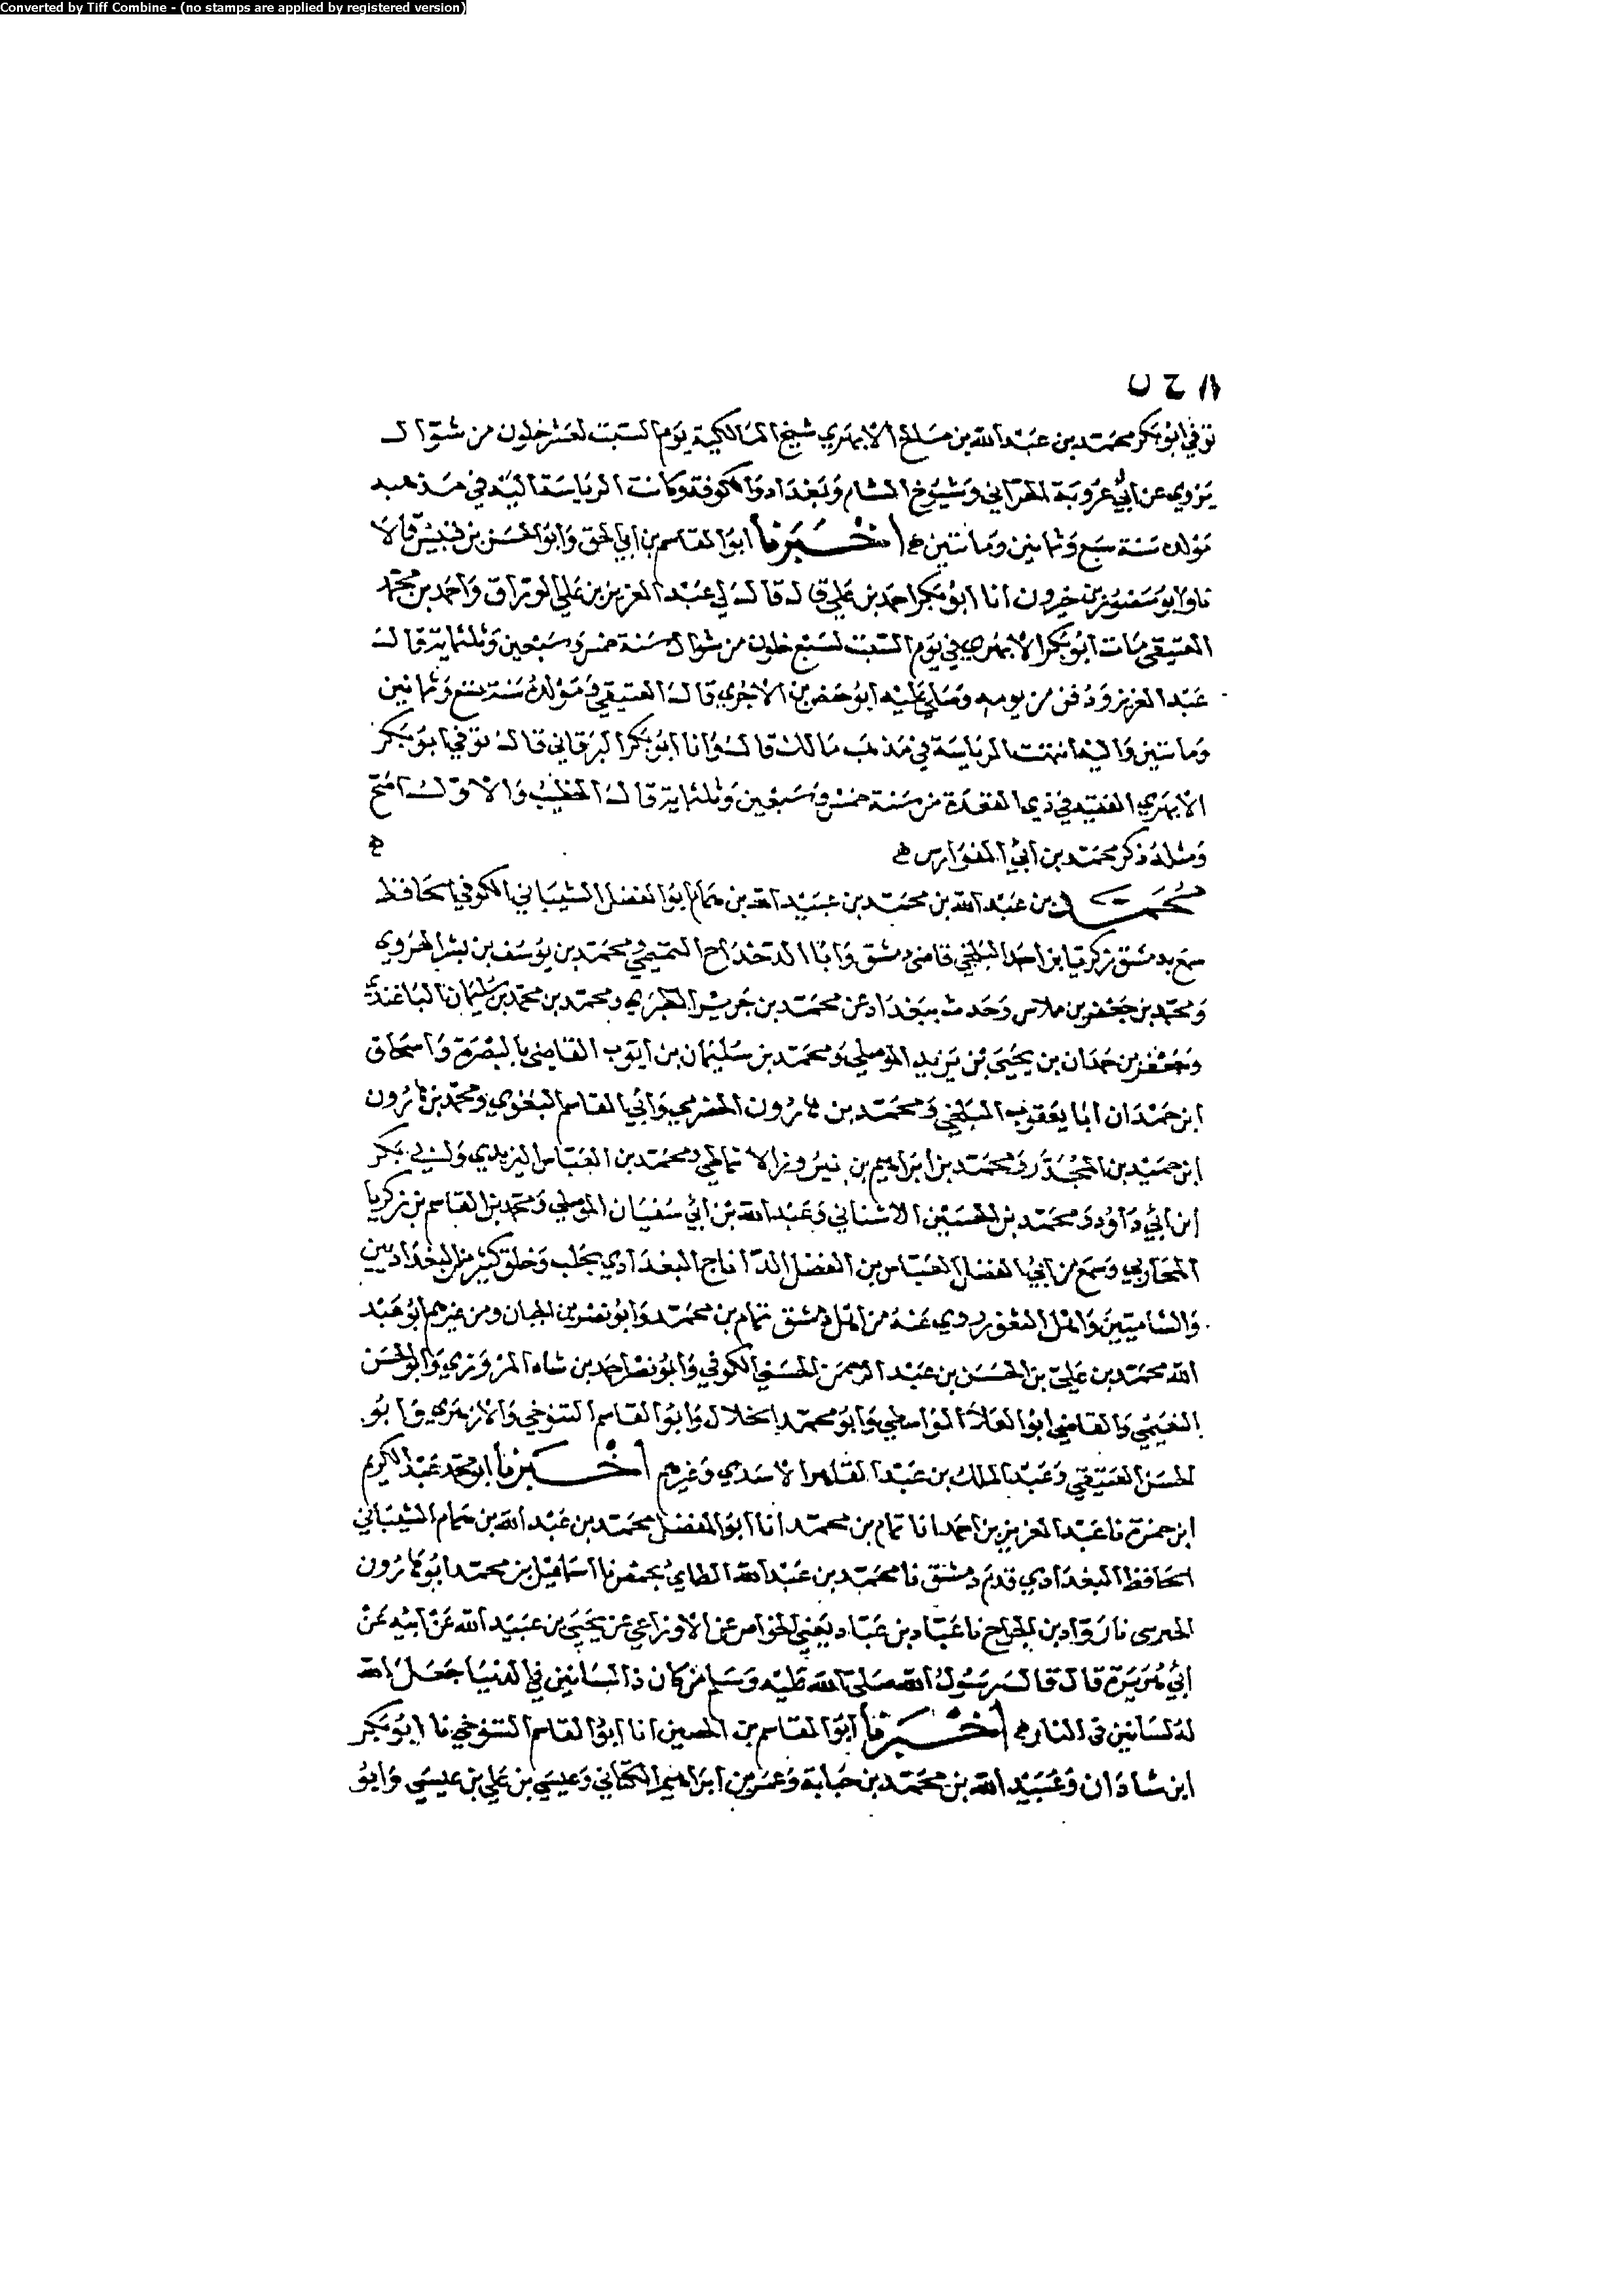 Converted by Tiff Combine - (no stamps are applied by registered version)
توفي ابو بكر محمد بن عبد الله بن صالح الابهري شيخ المالكية يوم السبت لعشر خلون من شوال
يروي عن ابي عروبة الحراني وشيوخ الشام وبغداد والكوفة وكانت الرياسة اليه في مذهبه
مولده سنة سبع وثمانين ومائتين اخبرنا ابو القاسم بن ابي الحق وابو الحسن بن قبيس قالا
نا وابو منصور بن خيرون انا ابو بكر احمد بن علي قال قال لي عبد العزيز بن علي الوراق واحمد بن محمد
العتيقي مات ابو بكر الابهري في يوم السبت لسبع خلون من شوال سنة خمس وسبعين وثلثماية قال
عبد العزيز ودفن من يومه وصلى عليه ابو حفص بن الاجري قال العتيقي ومولده سنة تسع وثمانين
ومائتين واليه انتهت الرياسة في مذهب مالك قال وانا ابو بكر البرقاني قال توفي ابو بكر
الابهري الفقيه في ذي القعدة من سنة خمس وسبعين وثلثماية قال الخطيب والاول اصح
ومثله ذكر محمد بن ابي الفوارس
محمد بن عبد الله بن محمد بن عبيد الله بن همام ابو الفضل الشيباني الكوفي الحافظ
سمع بدمشق زكريا بن احمد البلخي قاضي دمشق وابا الدحداح التميمي ومحمد بن يوسف بن بشر الهروي
ومحمد بن جعفر بن ملاس وحدث ببغداد عن محمد بن جرير الطبري ومحمد بن محمد بن سليمان الباغندي
وجعفر بن حمدان بن يحيى بن يزيد الموصلي ومحمد بن سليمان بن ايوب القاضي بالبصرة واسحاق
ابن حمدان ابا يعقوب البلخي ومحمد بن هارون الحضرمي وابي القاسم البغوي ومحمد بن هارون
ابن حميد بن المجدر ومحمد بن ابراهيم بن نيروز الانماطي ومحمد بن العباس اليزيدي وابي بكر
ابن ابي داود ومحمد بن الحسين الاشناني وعبد الله بن ابي سفيان الموصلي ومحمد بن القاسم بن زكريا
المحاربي وسمع من ابي الفضل العباس بن الفضل البغدادي بحلب وخلق كثير من البغداديين
والشاميين واهل الثغور روى عنه من اهل دمشق تمام بن محمد وابو نصر بن الجبان ومن غيرهم ابو عبد
الله محمد بن علي بن الحسن بن عبد الرحمن الحسني الكوفي وابو نصر احمد بن شاه المروزي وابو الحسن
النعيمي والقاضي ابو العلا الواسطي وابو محمد الخلال وابو القاسم التنوخي والازهري وابو
الحسن العتيقي وعبد الملك بن عبد القاهر الاسدي وغيرهم اخبرنا ابو محمد عبد الكريم
ابن حمزة نا عبد العزيز بن احمد انا تمام بن محمد انا ابو المفضل محمد بن عبد الله بن همام الشيباني
الحافظ البغدادي قدم دمشق نا محمد بن عبد الله الطاي بحمص نا اسماعيل بن محمد ابو هارون
نا رواد بن الجراح نا عباد بن عباد يعني الخواص عن الاوزاعي عن يحيى بن عبيد الله عن ابيه عن
ابي هريرة قال قال رسول الله صلى الله عليه وسلم من كان ذا لسانين في الدنيا جعل الله
له لسانين في النار اخبرنا ابو القاسم بن الحصين انا ابو القاسم التنوخي نا ابو بكر
ابن شاذان وعبيد الله بن محمد بن حبابة وعمر بن ابراهيم الكتاني وعيسى بن علي بن عيسى وابو